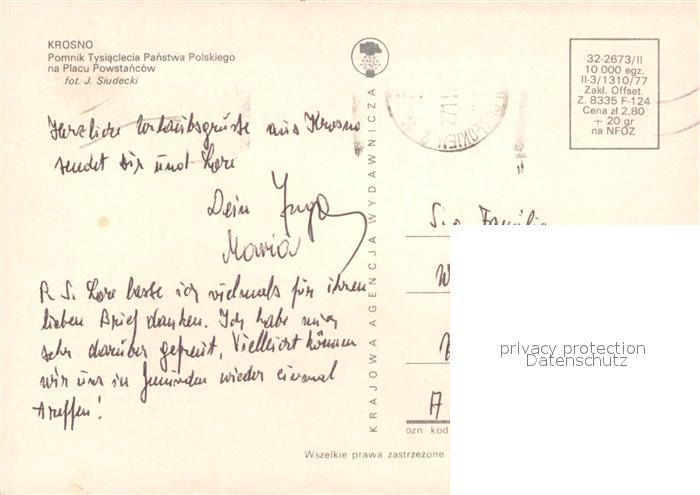 KROSNO
Pomnik Tysiąclecia Państwa Polskiego
na Placu Powstańców
fot. J. Siudecki
32-2673/II
10 000 egz.
II-3/1310/77
Zakł. Offset.
Z. 8335 F-124
Cena zł 2,80
+ 20 gr
na NFOZ
Herzliche Urlaubsgrüsse aus Krosno
sendet Dir und Lore
Dein
Maria
P. S. Lore lasse ich vielmals für ihren
lieben Brief danken. Ich habe mich
sehr darüber gefreut, Vielleicht können
wir uns in Gmünden wieder einmal
treffen!
KRAJOWA AGENCJA WYDAWNICZA
Familie
W
A
ozn. kod
Wszelkie prawa zastrzeżone
privacy protection
Datenschutz